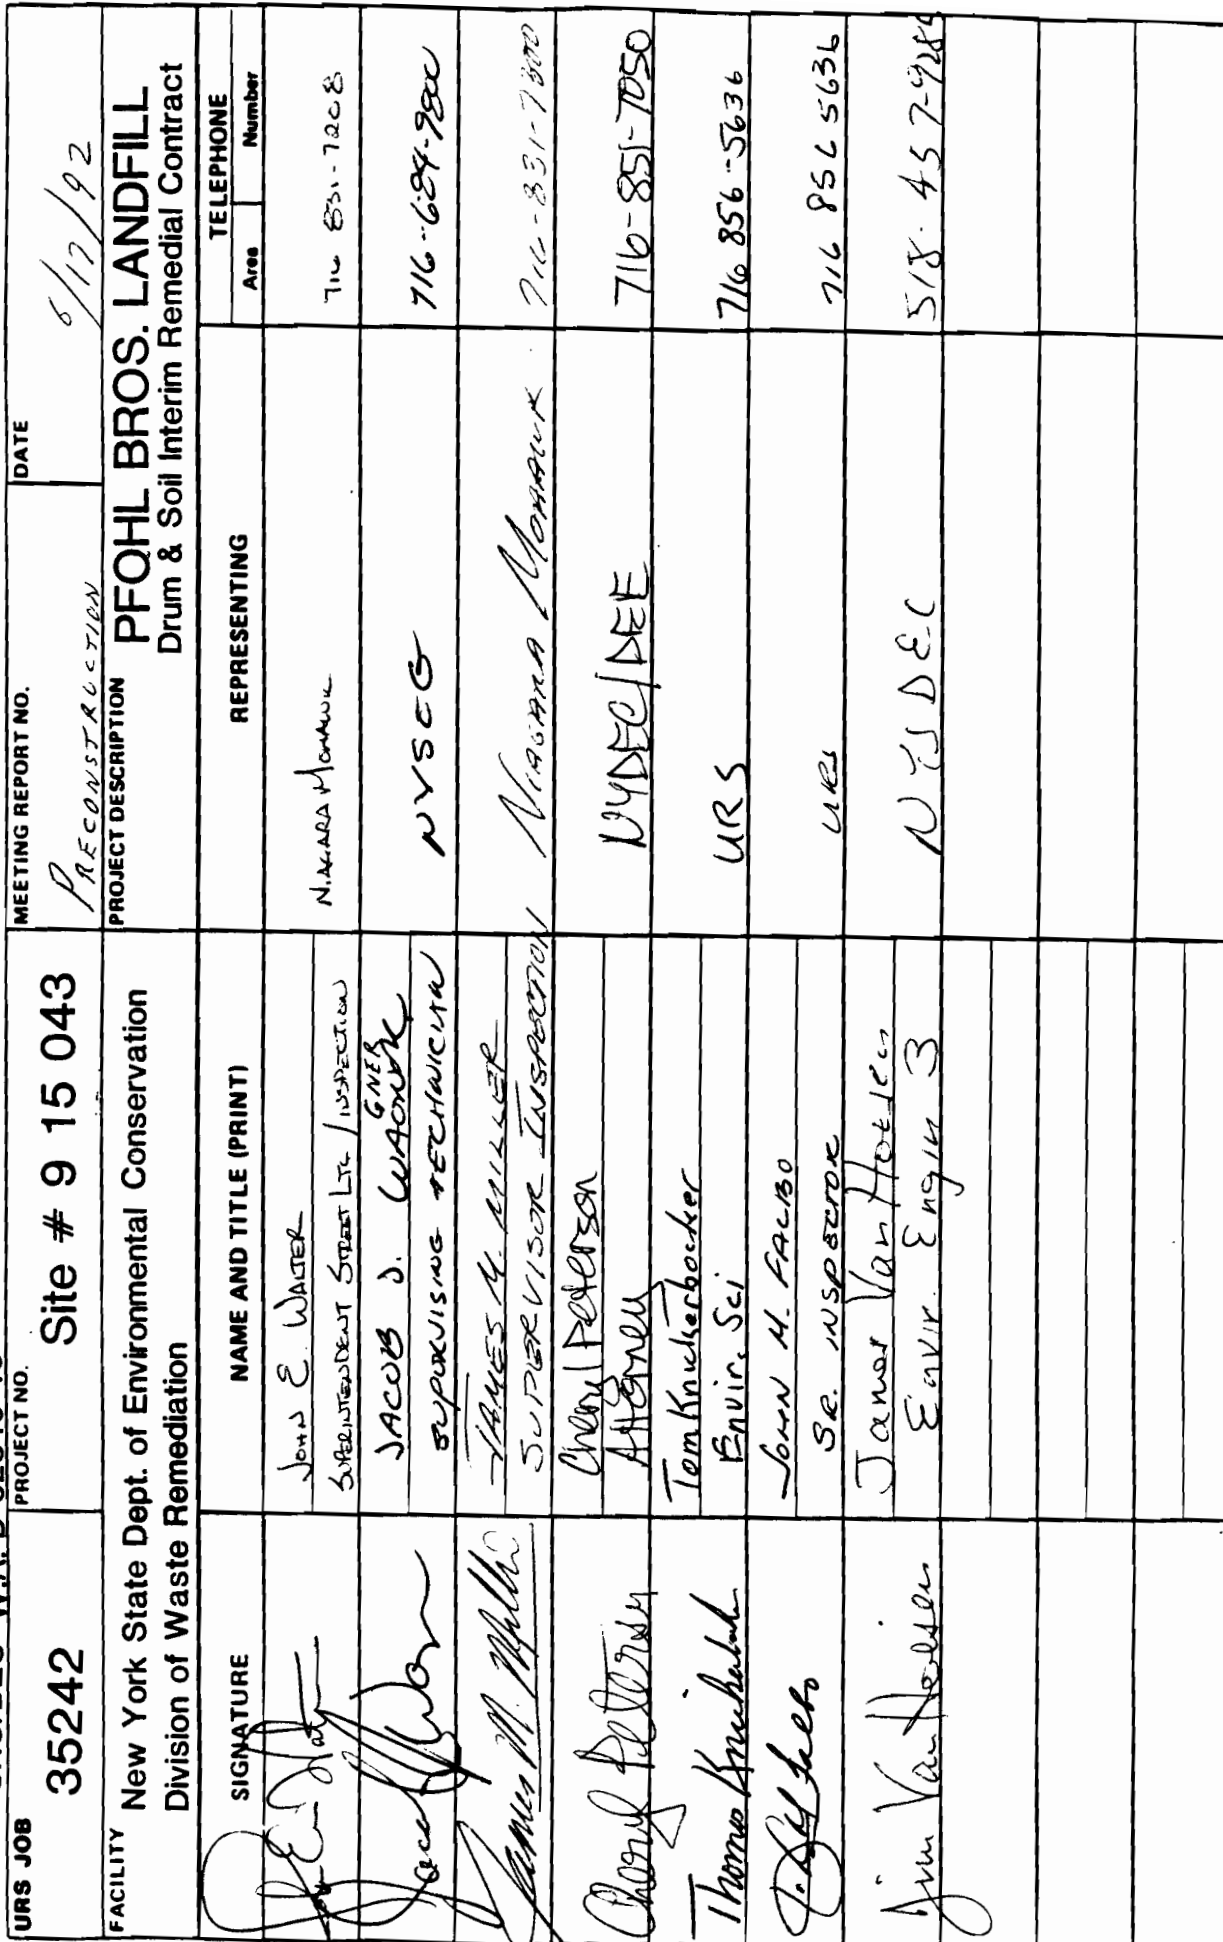 URS JOB
35242
PROJECT NO.
Site # 9 15 043
MEETING REPORT NO.
PRECONSTRUCTION
DATE
6/17/92
FACILITY
New York State Dept. of Environmental Conservation
Division of Waste Remediation
PROJECT DESCRIPTION
PFOHL BROS. LANDFILL
Drum & Soil Interim Remedial Contract
SIGNATURE
NAME AND TITLE (PRINT)
REPRESENTING
TELEPHONE
Area
Number
JOHN E. WALTER
SUPERINTENDENT STREET LTG / INSPECTION
NIAGARA MOHAWK
716 831-7208
JACOB J. WAGNER
SUPERVISING TECHNICIAN
NYSEG
716-684-7800
James M. Miller
JAMES M. MILLER
SUPERVISOR INSPECTION
NIAGARA MOHAWK
716-831-7800
Cheryl Petersen
Cheryl Peterson
Attorney
NYDEC/DEE
716-851-7050
Thomas Knickerbocker
Tom Knickerbocker
Envir. Sci
URS
716 856-5636
J. M. Falbo
JOHN M. FALBO
SR. INSPECTOR
URS
716 856 5636
Jim Van Hoesen
James Van Hoesen
Envir. Engin 3
NYSDEC
518-457-9285